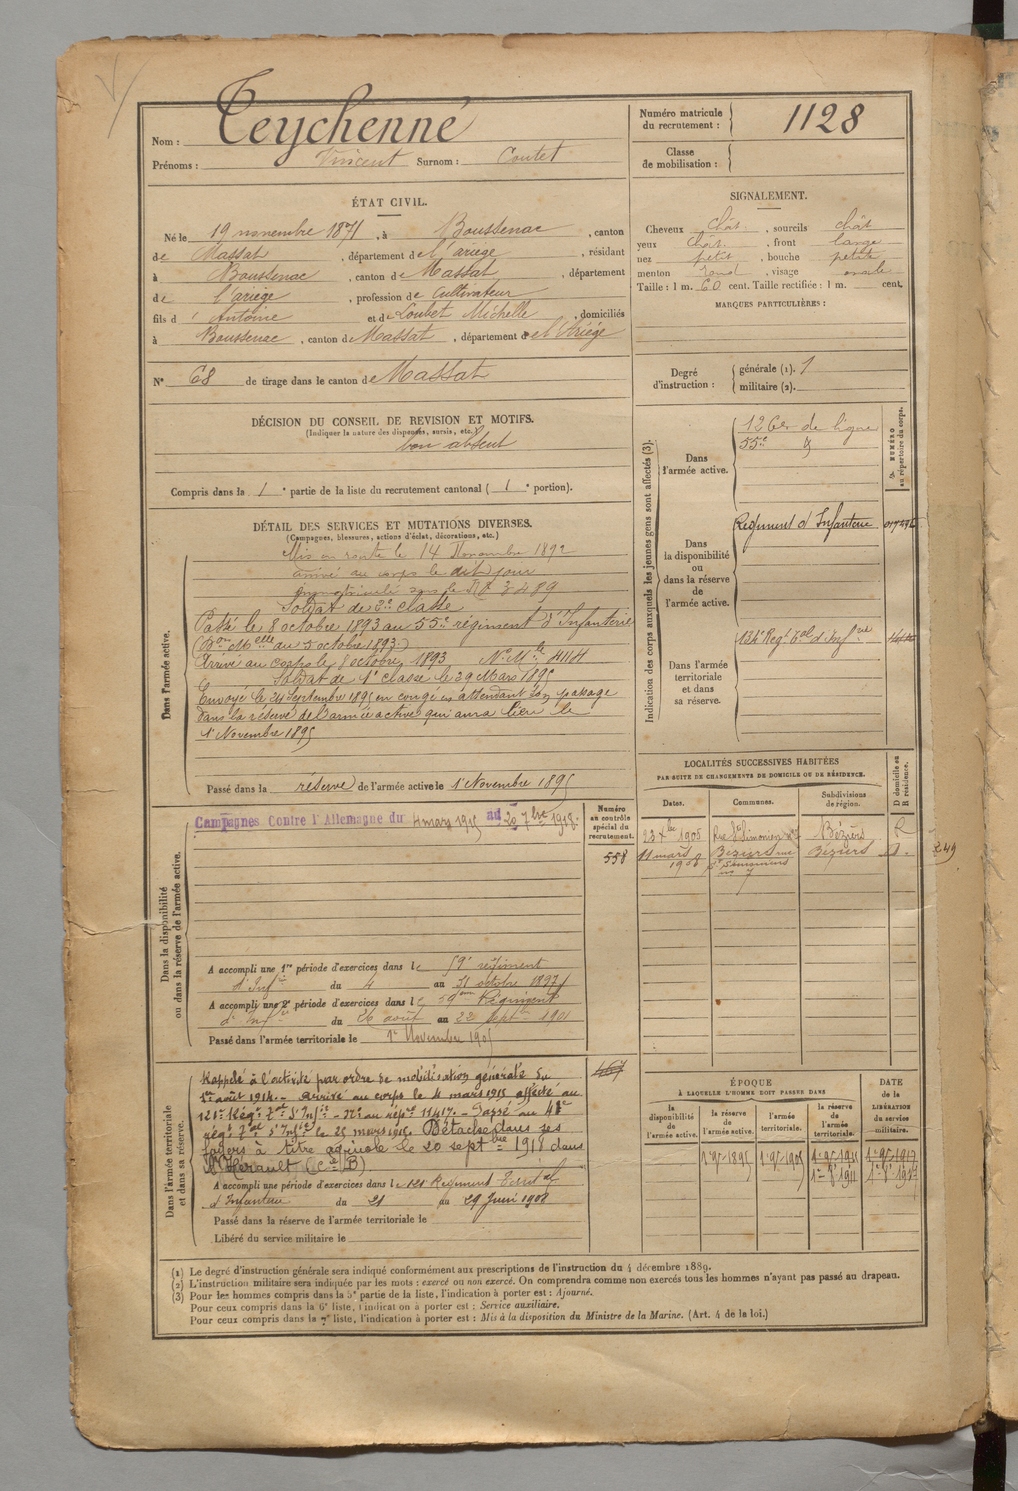 Nom : Teychenné
Prénoms : Vincent Surnom : Coutet
Numéro matricule du recrutement : 1128
Classe de mobilisation :
ÉTAT CIVIL.
Né le 19 novembre 1871, à Boussenac, canton
de Massat, département de l'ariège, résidant
à Boussenac, canton de Massat, département
de l'ariège, profession de Cultivateur
fils d' Antoine et de Loubet Michelle, domiciliés
à Boussenac, canton de Massat, département de l'Ariége
N° 68 de tirage dans le canton de Massat
SIGNALEMENT.
Cheveux chât, sourcils chât
yeux chât, front large
nez petit, bouche petite
menton rond, visage ovale
Taille : 1 m. 60 cent. Taille rectifiée : 1 m. cent.
MARQUES PARTICULIÈRES :
Degré d'instruction : générale (1). 1
militaire (2).
DÉCISION DU CONSEIL DE REVISION ET MOTIFS.
(Indiquer la nature des dispenses, sursis, etc.)
bon absent
Compris dans la 1e partie de la liste du recrutement cantonal (1e portion).
DÉTAIL DES SERVICES ET MUTATIONS DIVERSES.
(Campagnes, blessures, actions d'éclat, décorations, etc.)
Dans l'armée active.
Mis en route le 14 Novembre 1892
arrivé au corps le dit jour
immatriculé sous le N° 3489
Soldat de 2e classe
Passé le 8 octobre 1893 au 55e régiment d'Infanterie
(Don Melle du 5 octobre 1893)
Arrivé au corps le 8 octobre 1893 N° Mle 4114
Soldat de 1e classe le 29 Mars 1895
Envoyé le 24 Septembre 1895 en congé en attendant son passage
dans la réserve de l'armée active qui aura lieu le
1er Novembre 1895
Passé dans la réserve de l'armée active le 1er Novembre 1895
Indication des corps auxquels les jeunes gens sont affectés (3).
NUMÉRO au répertoire du corps.
Dans l'armée active.
126e de ligne
55e d°
Dans la disponibilité ou dans la réserve de l'armée active.
Régiment d'Infanterie
Dans l'armée territoriale et dans sa réserve.
134e Regt tal d'Infrie
LOCALITÉS SUCCESSIVES HABITÉES
PAR SUITE DE CHANGEMENTS DE DOMICILE OU DE RÉSIDENCE.
Dates. Communes. Subdivisions de région. D domicile ou R résidence.
23 Xbre 1905 Rue St Simonien n° 7 Béziers R
11 mars 1906 Beziers rue St Simoniens n° 7 Béziers D.
249
Dans la disponibilité ou dans la réserve de l'armée active.
Numéro au contrôle spécial du recrutement.
558
Campagnes Contre l'Allemagne du 4 mars 1915 au 20 7bre 1918.
A accompli une 1re période d'exercices dans le 59e régiment
d'Infie du 4 au 31 octobre 1897
A accompli une 2e période d'exercices dans le 59eme Régiment
d'Infie du 26 août au 22 Septe 1901
Passé dans l'armée territoriale le 1er Novembre 1905
Dans l'armée territoriale et dans sa réserve.
Rappelé à l'activité par ordre de mobilisation générale du
1er août 1914. - Arrivé au corps le 4 mars 1915 affecté au
121e Régt Tal d'Infie - N° au répre 11417. - Passé au
régt Tal d'Infie le 25 mars 1915. Détaché dans ses
foyers à titre agricole le 20 septbre 1918 dans
l'Hérault (Cie B)
A accompli une période d'exercices dans le 121 Régiment Territal
d'Infanterie du 21 au 29 Juin 1908
Passé dans la réserve de l'armée territoriale le
Libéré du service militaire le
ÉPOQUE À LAQUELLE L'HOMME DOIT PASSER DANS
la disponibilité de l'armée active. la réserve de l'armée active. l'armée territoriale. la réserve de l'armée territoriale. DATE de la LIBÉRATION du service militaire.
1er 9bre 1895 1er 9bre 1905 1er 9bre 1911 1er 9bre 1917
(1) Le degré d'instruction générale sera indiqué conformément aux prescriptions de l'instruction du 4 décembre 1889.
(2) L'instruction militaire sera indiquée par les mots : exercé ou non exercé. On comprendra comme non exercés tous les hommes n'ayant pas passé au drapeau.
(3) Pour les hommes compris dans la 5e partie de la liste, l'indication à porter est : Ajourné.
Pour ceux compris dans la 6e liste, l'indication à porter est : Service auxiliaire.
Pour ceux compris dans la 7e liste, l'indication à porter est : Mis à la disposition du Ministre de la Marine. (Art. 4 de la loi.)